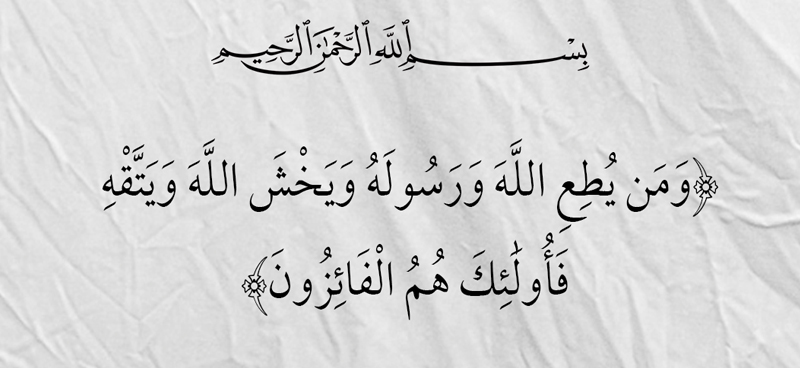 بِسْمِ ٱللَّهِ ٱلرَّحْمَٰنِ ٱلرَّحِيمِ
﴿وَمَن يُطِعِ اللَّهَ وَرَسُولَهُ وَيَخْشَ اللَّهَ وَيَتَّقْهِ
فَأُولَٰئِكَ هُمُ الْفَائِزُونَ﴾